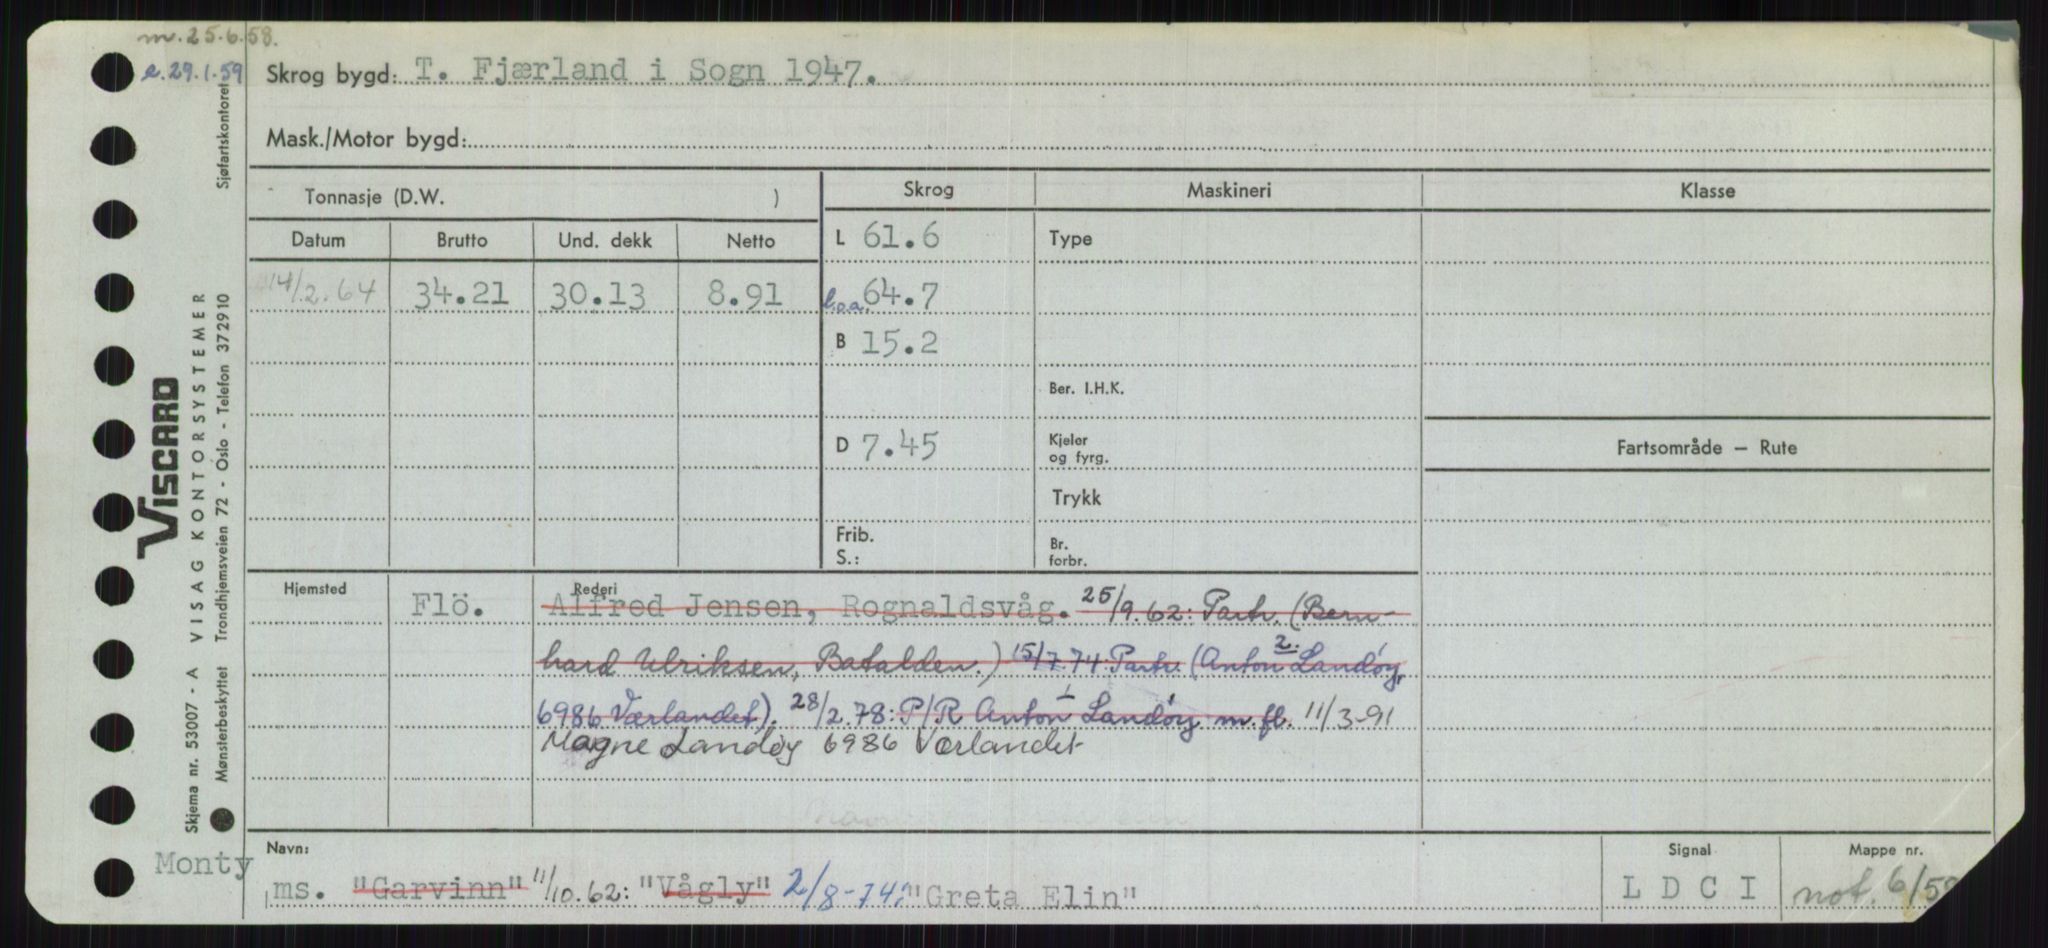 m. 25.6.58.
e. 29.1.59
Skrog bygd: T. Fjærland i Sogn 1947.
Mask./Motor bygd:
Tonnasje (D.W. )
Skrog
Maskineri
Klasse
Datum
Brutto
Und. dekk
Netto
L 61.6
Type
14/2.64
34.21
30.13
8.91
l.o.a. 64.7
B 15.2
Ber. I.H.K.
D 7.45
Kjeler
og fyrg.
Fartsområde — Rute
Trykk
Frib.
S.:
Br.
forbr.
Hjemsted
Flö.
Rederi
Alfred Jensen, Rognaldsvåg. 25/9.62: Partr. (Bern-
hard Ulriksen, Batalden.) 15/7.74: Partr. (Anton 2: Landøy,
6986 Værlandet). 28/2.78: P/R Anton L Landøy m.fl. 11/3-91
Magne Landøy 6986 Værlandet
Navn:
Monty
ms. "Garvinn" 11/10.62: "Vågly" 2/8-74: "Greta Elin"
Signal
L D C I
Mappe nr.
not. 6/59
Sjøfartskontoret
VISCARD
VISAG KONTORSYSTEMER
Trondhjemsveien 72 - Oslo - Telefon 372910
Skjema nr. 53007 - A
Mønsterbeskyttet